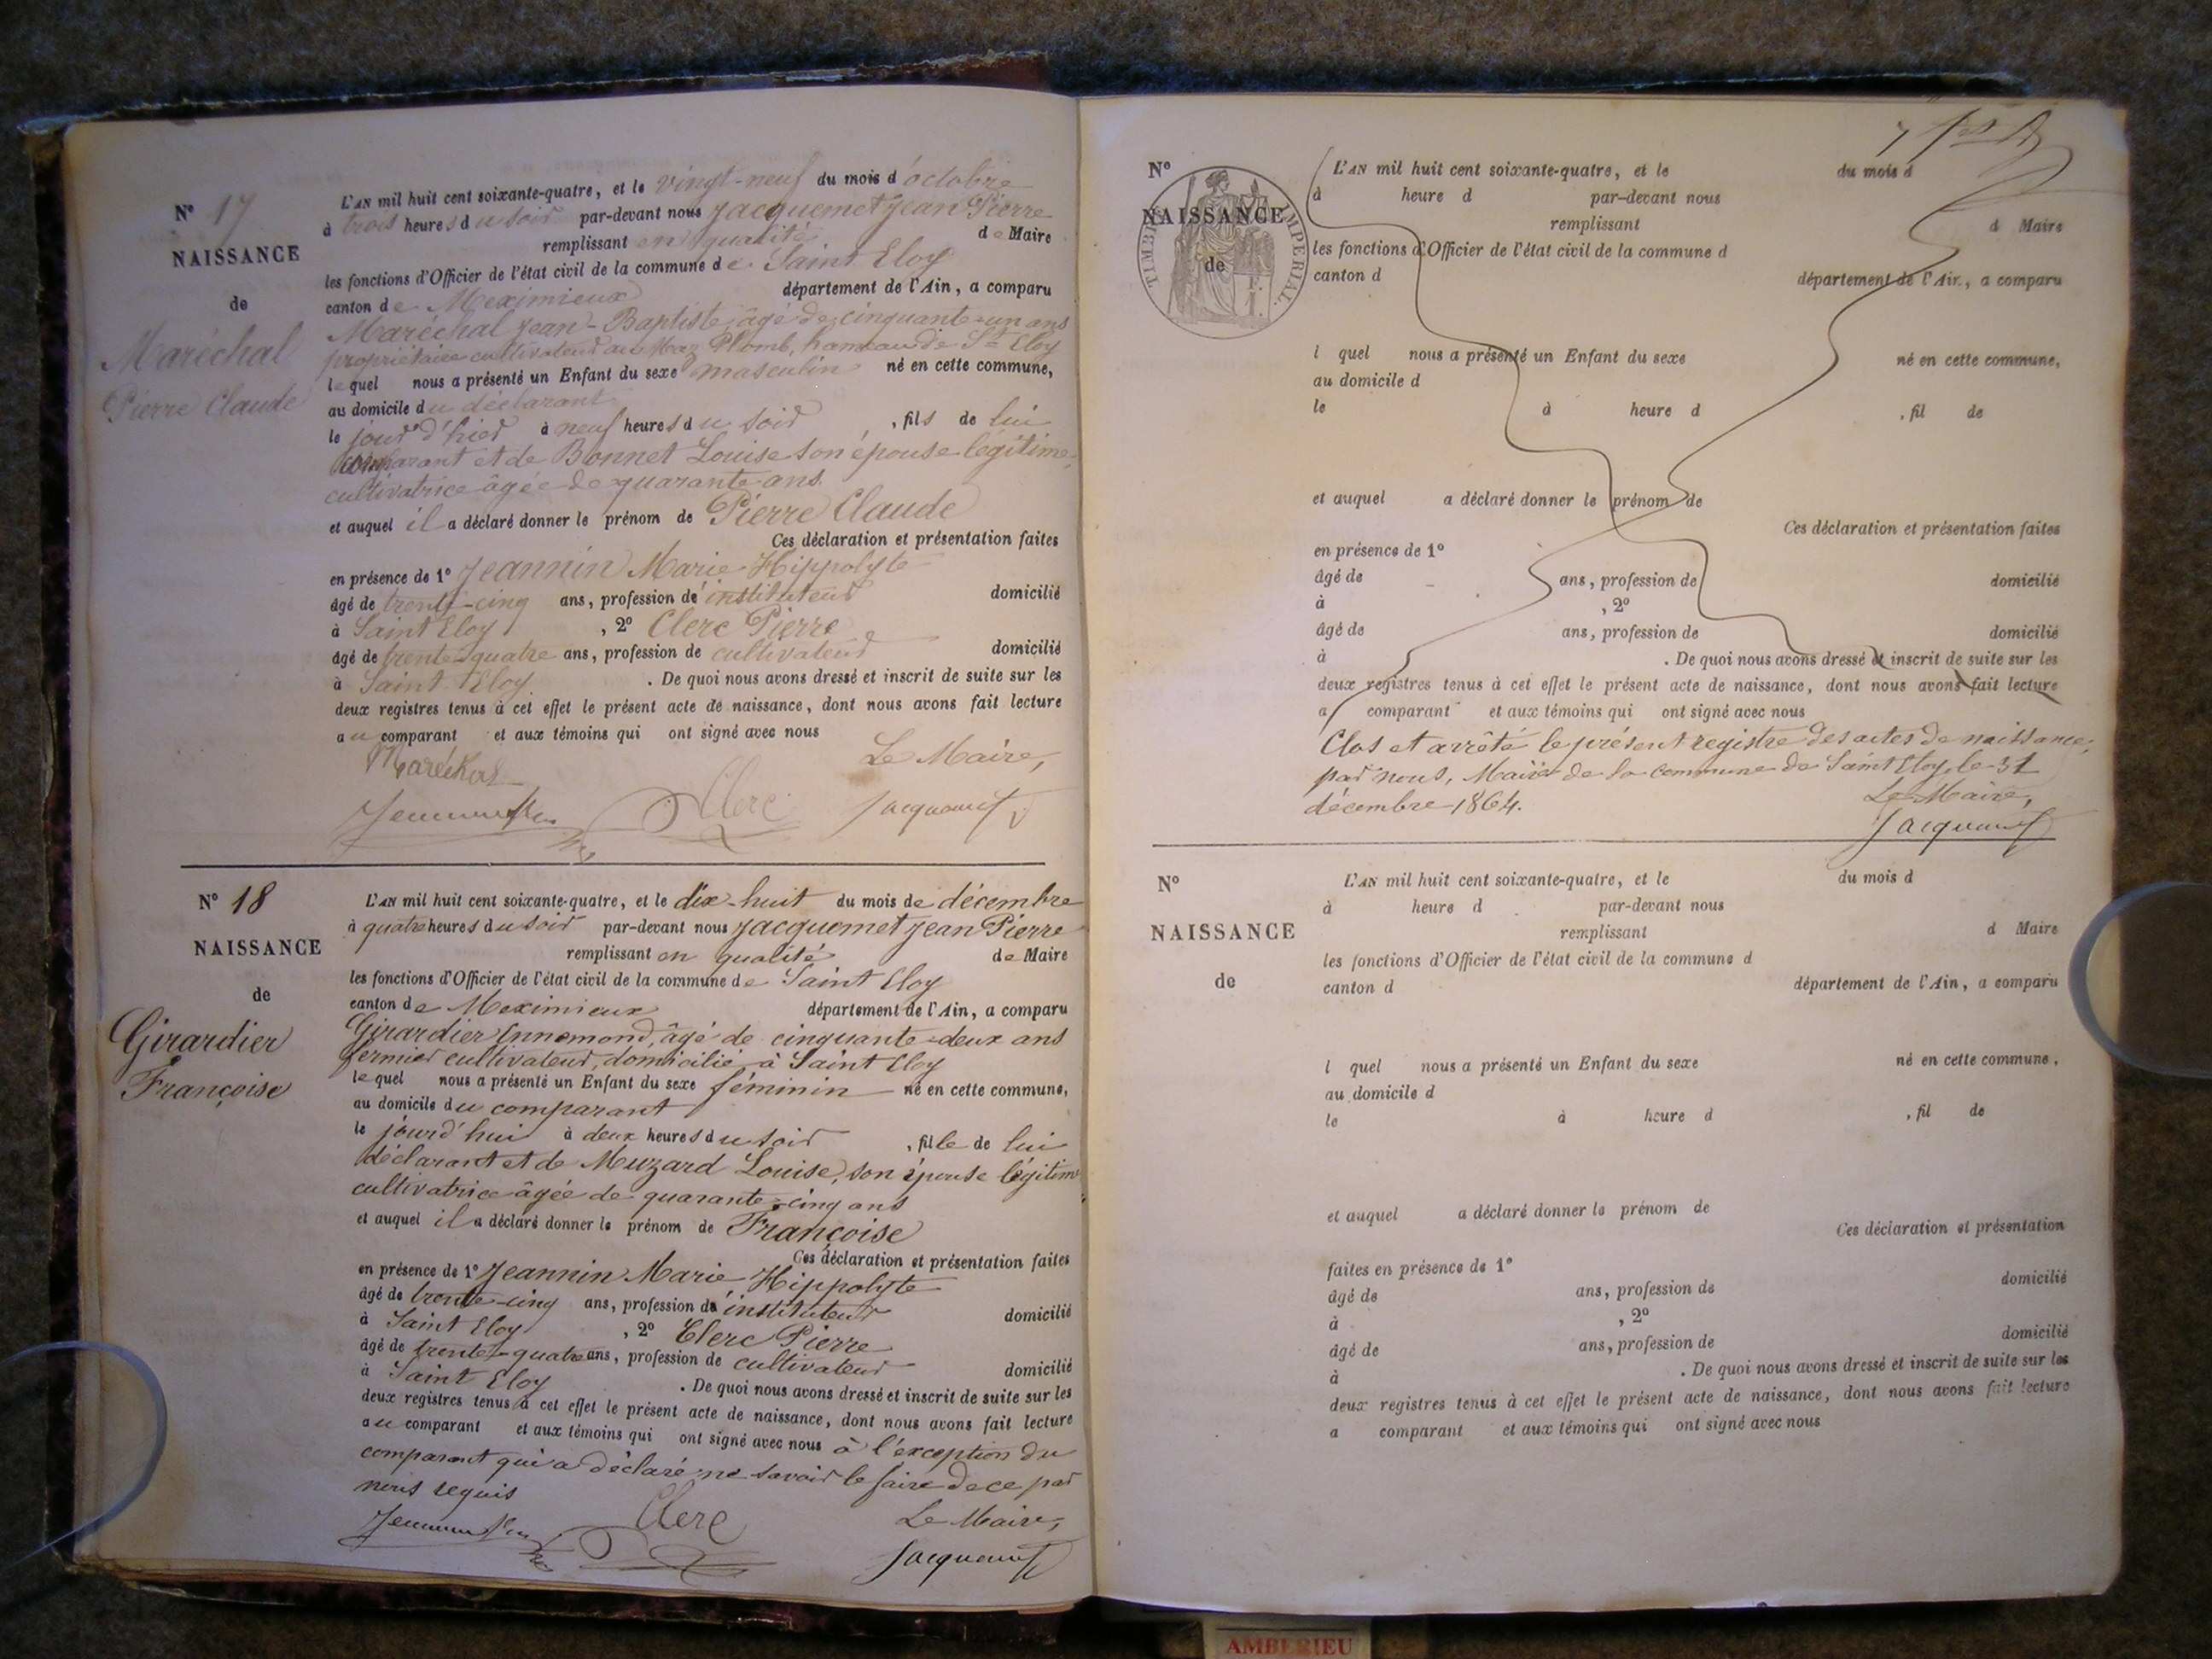 N° 17
NAISSANCE
de
Maréchal
Pierre Claude
L'AN mil huit cent soixante-quatre, et le vingt-neuf du mois d'octobre
à trois heures du soir par-devant nous Jacquemet Jean Pierre
remplissant en qualité de Maire
les fonctions d'Officier de l'état civil de la commune de Saint Eloy
canton de Meximieux département de l'Ain, a comparu
Maréchal Jean-Baptiste, âgé de cinquante-un ans
propriétaire cultivateur au Maz Plomb, hameau de St Eloy
lequel nous a présenté un Enfant du sexe masculin né en cette commune,
au domicile du déclarant
le jour d'hier à neuf heures du soir , fils de lui
comparant et de Bonnet Louise son épouse légitime,
cultivatrice âgée de quarante ans
et auquel il a déclaré donner le prénom de Pierre Claude
Ces déclaration et présentation faites
en présence de 1° Jeannin Marie Hippolyte
âgé de trente-cinq ans, profession de instituteur domicilié
à Saint Eloy , 2° Clerc Pierre
âgé de trente-quatre ans, profession de cultivateur domicilié
à Saint Eloy . De quoi nous avons dressé et inscrit de suite sur les
deux registres tenus à cet effet le présent acte de naissance, dont nous avons fait lecture
au comparant et aux témoins qui ont signé avec nous
Maréchal Le Maire,
Clerc Jacquemet
N° 18
NAISSANCE
de
Girardier
Françoise
L'AN mil huit cent soixante-quatre, et le dix-huit du mois de décembre
à quatre heures du soir par-devant nous Jacquemet Jean Pierre
remplissant en qualité de Maire
les fonctions d'Officier de l'état civil de la commune de Saint Eloy
canton de Meximieux département de l'Ain, a comparu
Girardier Ennemond, âgé de cinquante-deux ans
fermier cultivateur, domicilié à Saint Eloy
lequel nous a présenté un Enfant du sexe féminin né en cette commune,
au domicile du comparant
le jourd'hui à deux heures du soir , fille de lui
déclarant et de Muzard Louise, son épouse légitime
cultivatrice âgée de quarante-cinq ans
et auquel il a déclaré donner le prénom de Françoise
Ces déclaration et présentation faites
en présence de 1° Jeannin Marie Hippolyte
âgé de trente-cinq ans, profession de instituteur domicilié
à Saint Eloy , 2° Clerc Pierre
âgé de trente-quatre ans, profession de cultivateur domicilié
à Saint Eloy . De quoi nous avons dressé et inscrit de suite sur les
deux registres tenus à cet effet le présent acte de naissance, dont nous avons fait lecture
au comparant et aux témoins qui ont signé avec nous à l'exception du
comparant qui a déclaré ne savoir le faire de ce par
nous requis
Clerc Le Maire,
Jacquemet
N°
NAISSANCE
de
TIMBRE IMPERIAL.
L'AN mil huit cent soixante-quatre, et le du mois d
à heure d par-devant nous
remplissant d Maire
les fonctions d'Officier de l'état civil de la commune d
canton d département de l'Ain, a comparu
l quel nous a présenté un Enfant du sexe né en cette commune,
au domicile d
le à heure d , fil de
et auquel a déclaré donner le prénom de
Ces déclaration et présentation faites
en présence de 1°
âgé de ans, profession de domicilié
à , 2°
âgé de ans, profession de domicilié
à . De quoi nous avons dressé et inscrit de suite sur les
deux registres tenus à cet effet le présent acte de naissance, dont nous avons fait lecture
a comparant et aux témoins qui ont signé avec nous
Clos et arrêté le présent registre des actes de naissance,
par nous, Maire de la commune de Saint Eloy, le 31
décembre 1864. Le Maire,
Jacquemet
N°
NAISSANCE
de
L'AN mil huit cent soixante-quatre, et le du mois d
à heure d par-devant nous
remplissant d Maire
les fonctions d'Officier de l'état civil de la commune d
canton d département de l'Ain, a comparu
l quel nous a présenté un Enfant du sexe né en cette commune,
au domicile d
le à heure d , fil de
et auquel a déclaré donner le prénom de
Ces déclaration et présentation
faites en présence de 1°
âgé de ans, profession de domicilié
à , 2°
âgé de ans, profession de domicilié
à . De quoi nous avons dressé et inscrit de suite sur les
deux registres tenus à cet effet le présent acte de naissance, dont nous avons fait lecture
a comparant et aux témoins qui ont signé avec nous
AMBERIEU